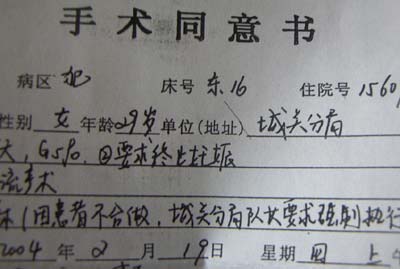 手术同意书
病区 犯 床号 东16 住院号 1560
性别 女 年龄 29岁 单位(地址) 城关分局
大,G5P0, ②要求终止妊娠
流手术
(因患者不合做,城关分局队长要求强制执行
2004 年 2 月 19 日 星期 四 上